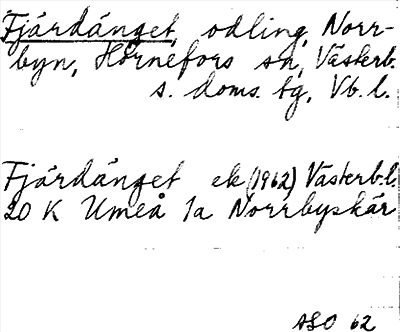 Fjärdänget, odling, Norr-
byn, Hörnefors sn, Västerb.
s. doms. tg, Vb. l.
Fjärdänget ek (1962) Västerb.l.
20 K Umeå 1a Norrbyskär
ASO 62